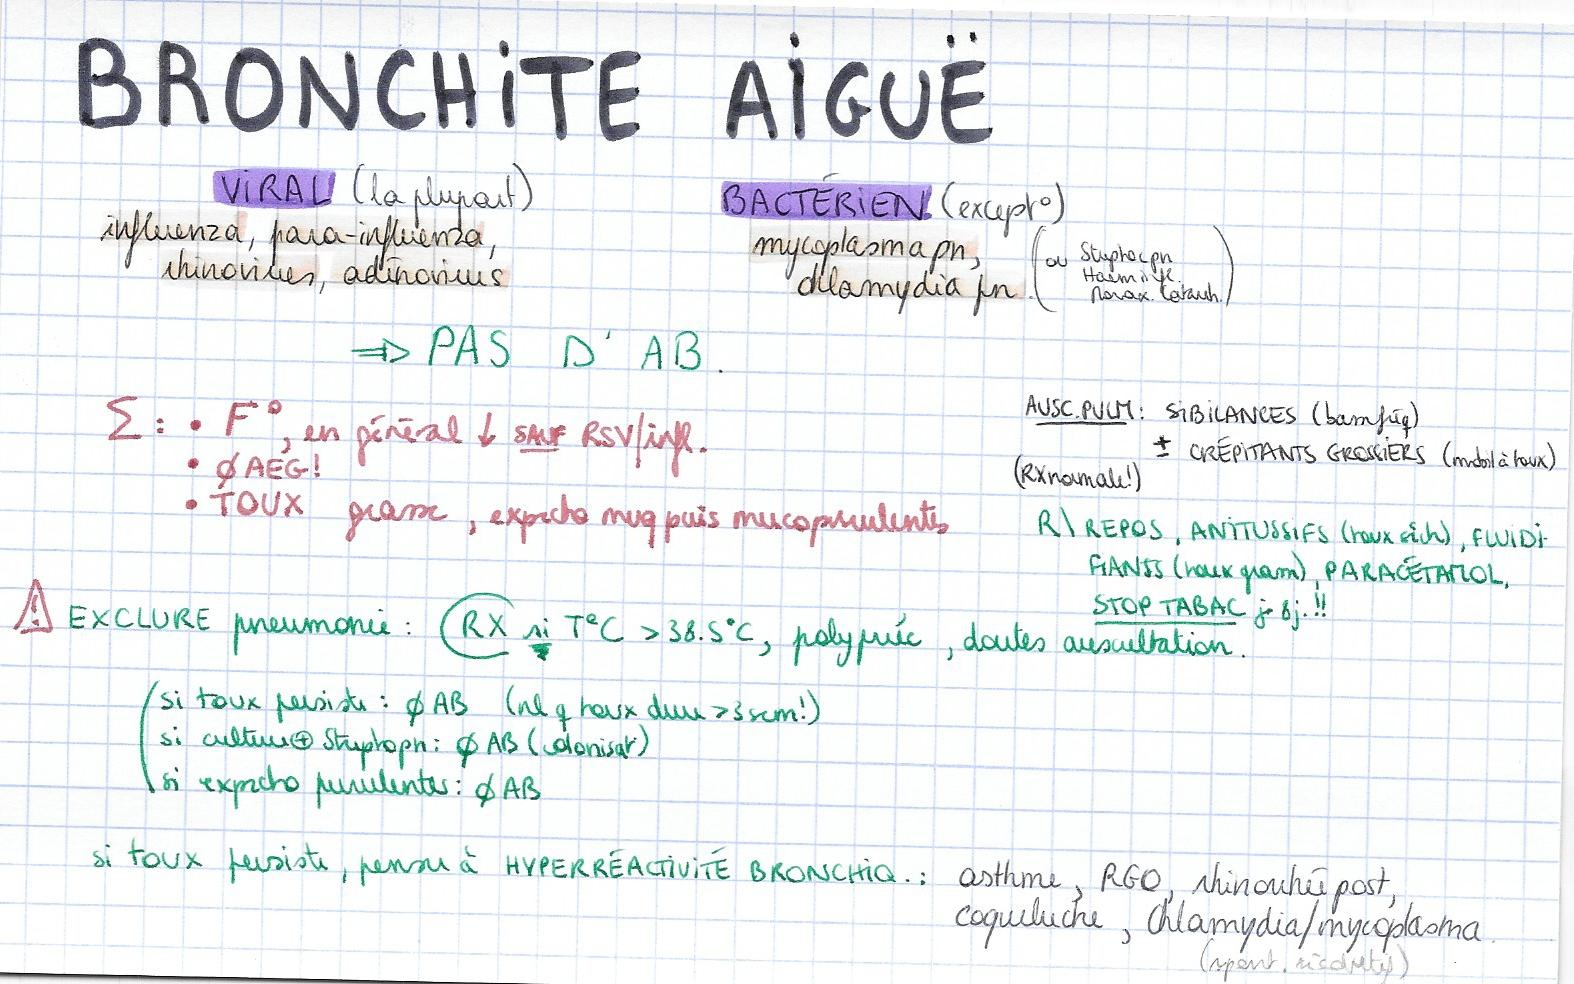 BRONCHITE AIGUË
VIRAL (la plupart)
influenza, para-influenza,
rhinovirus, adénovirus
BACTÉRIEN (except°)
mycoplasma pn,
chlamydia pn.
(ou Streptoc pn
Haem. infl.
Morax. Catarrh.)
⇒ PAS D'AB.
Σ : • F°, en général ↓ SAUF RSV/infl.
• ∅ AEG!
• TOUX grasse, expecto muq puis mucopurulentes
AUSC. PULM : SIBILANCES (bamfüq)
± CRÉPITANTS GROSSIERS (mobil à toux)
(RX normale!)
R\ REPOS, ANITUSSIFS (toux sèch), FLUIDI-
FIANTS (toux grass), PARACÉTAMOL,
STOP TABAC !!
⚠ EXCLURE pneumonie : RX si T°C > 38.5°C, polypnée, doutes auscultation.
si toux persiste : ∅ AB (nl q toux dure > 3 sem!)
si culture ⊕ Streptopn : ∅ AB (colonisat°)
si expecto purulentes : ∅ AB
si toux persiste, penser à HYPERRÉACTIVITÉ BRONCHIQ. : asthme, RGO, rhinorrhée post,
coqueluche, chlamydia/mycoplasma.